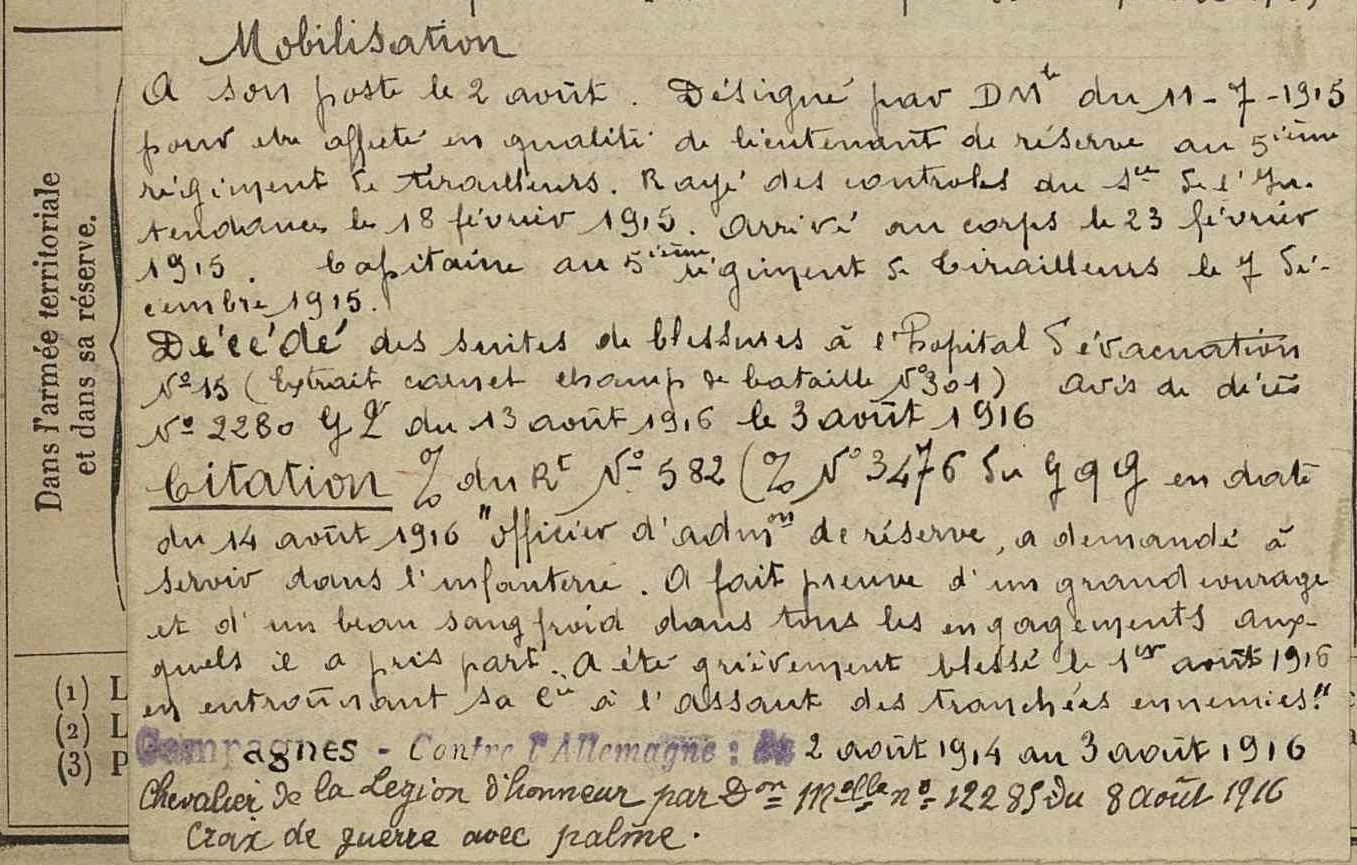 Mobilisation
A son poste le 2 août. Désigné par DMle du 11-7-1915
pour etre affecté en qualité de lieutenant de réserve au 5ième
régiment de tirailleurs. Rayé des controles du Sce de l'In-
tendance le 18 février 1915. Arrivé au corps le 23 février
1915. Capitaine au 5ième régiment de tirailleurs le 7 dé-
cembre 1915.
Décédé des suites de blessures à l'hopital d'évacuation
No 15 (Extrait carnet champ de bataille No 301) avis de décès
No 2280 du 13 août 1916 le 3 août 1916
Citation % du Rt No 582 (% No 3476 du G Q G en date
du 14 août 1916 "officier d'admon de réserve, a demandé à
servir dans l'infanterie. A fait preuve d'un grand courage
et d'un beau sang froid dans tous les engagements aux-
quels il a pris part. A été grièvement blessé le 1er août 1916
en entraînant sa Cie à l'assaut des tranchées ennemies."
Campagnes - Contre l'Allemagne : 2 août 1914 au 3 août 1916
Chevalier de la Legion d'honneur par Don Molle no 12285 du 8 août 1916
Croix de guerre avec palme.
Dans l'armée territoriale
et dans sa réserve.
(1) L
(2) L
(3) P